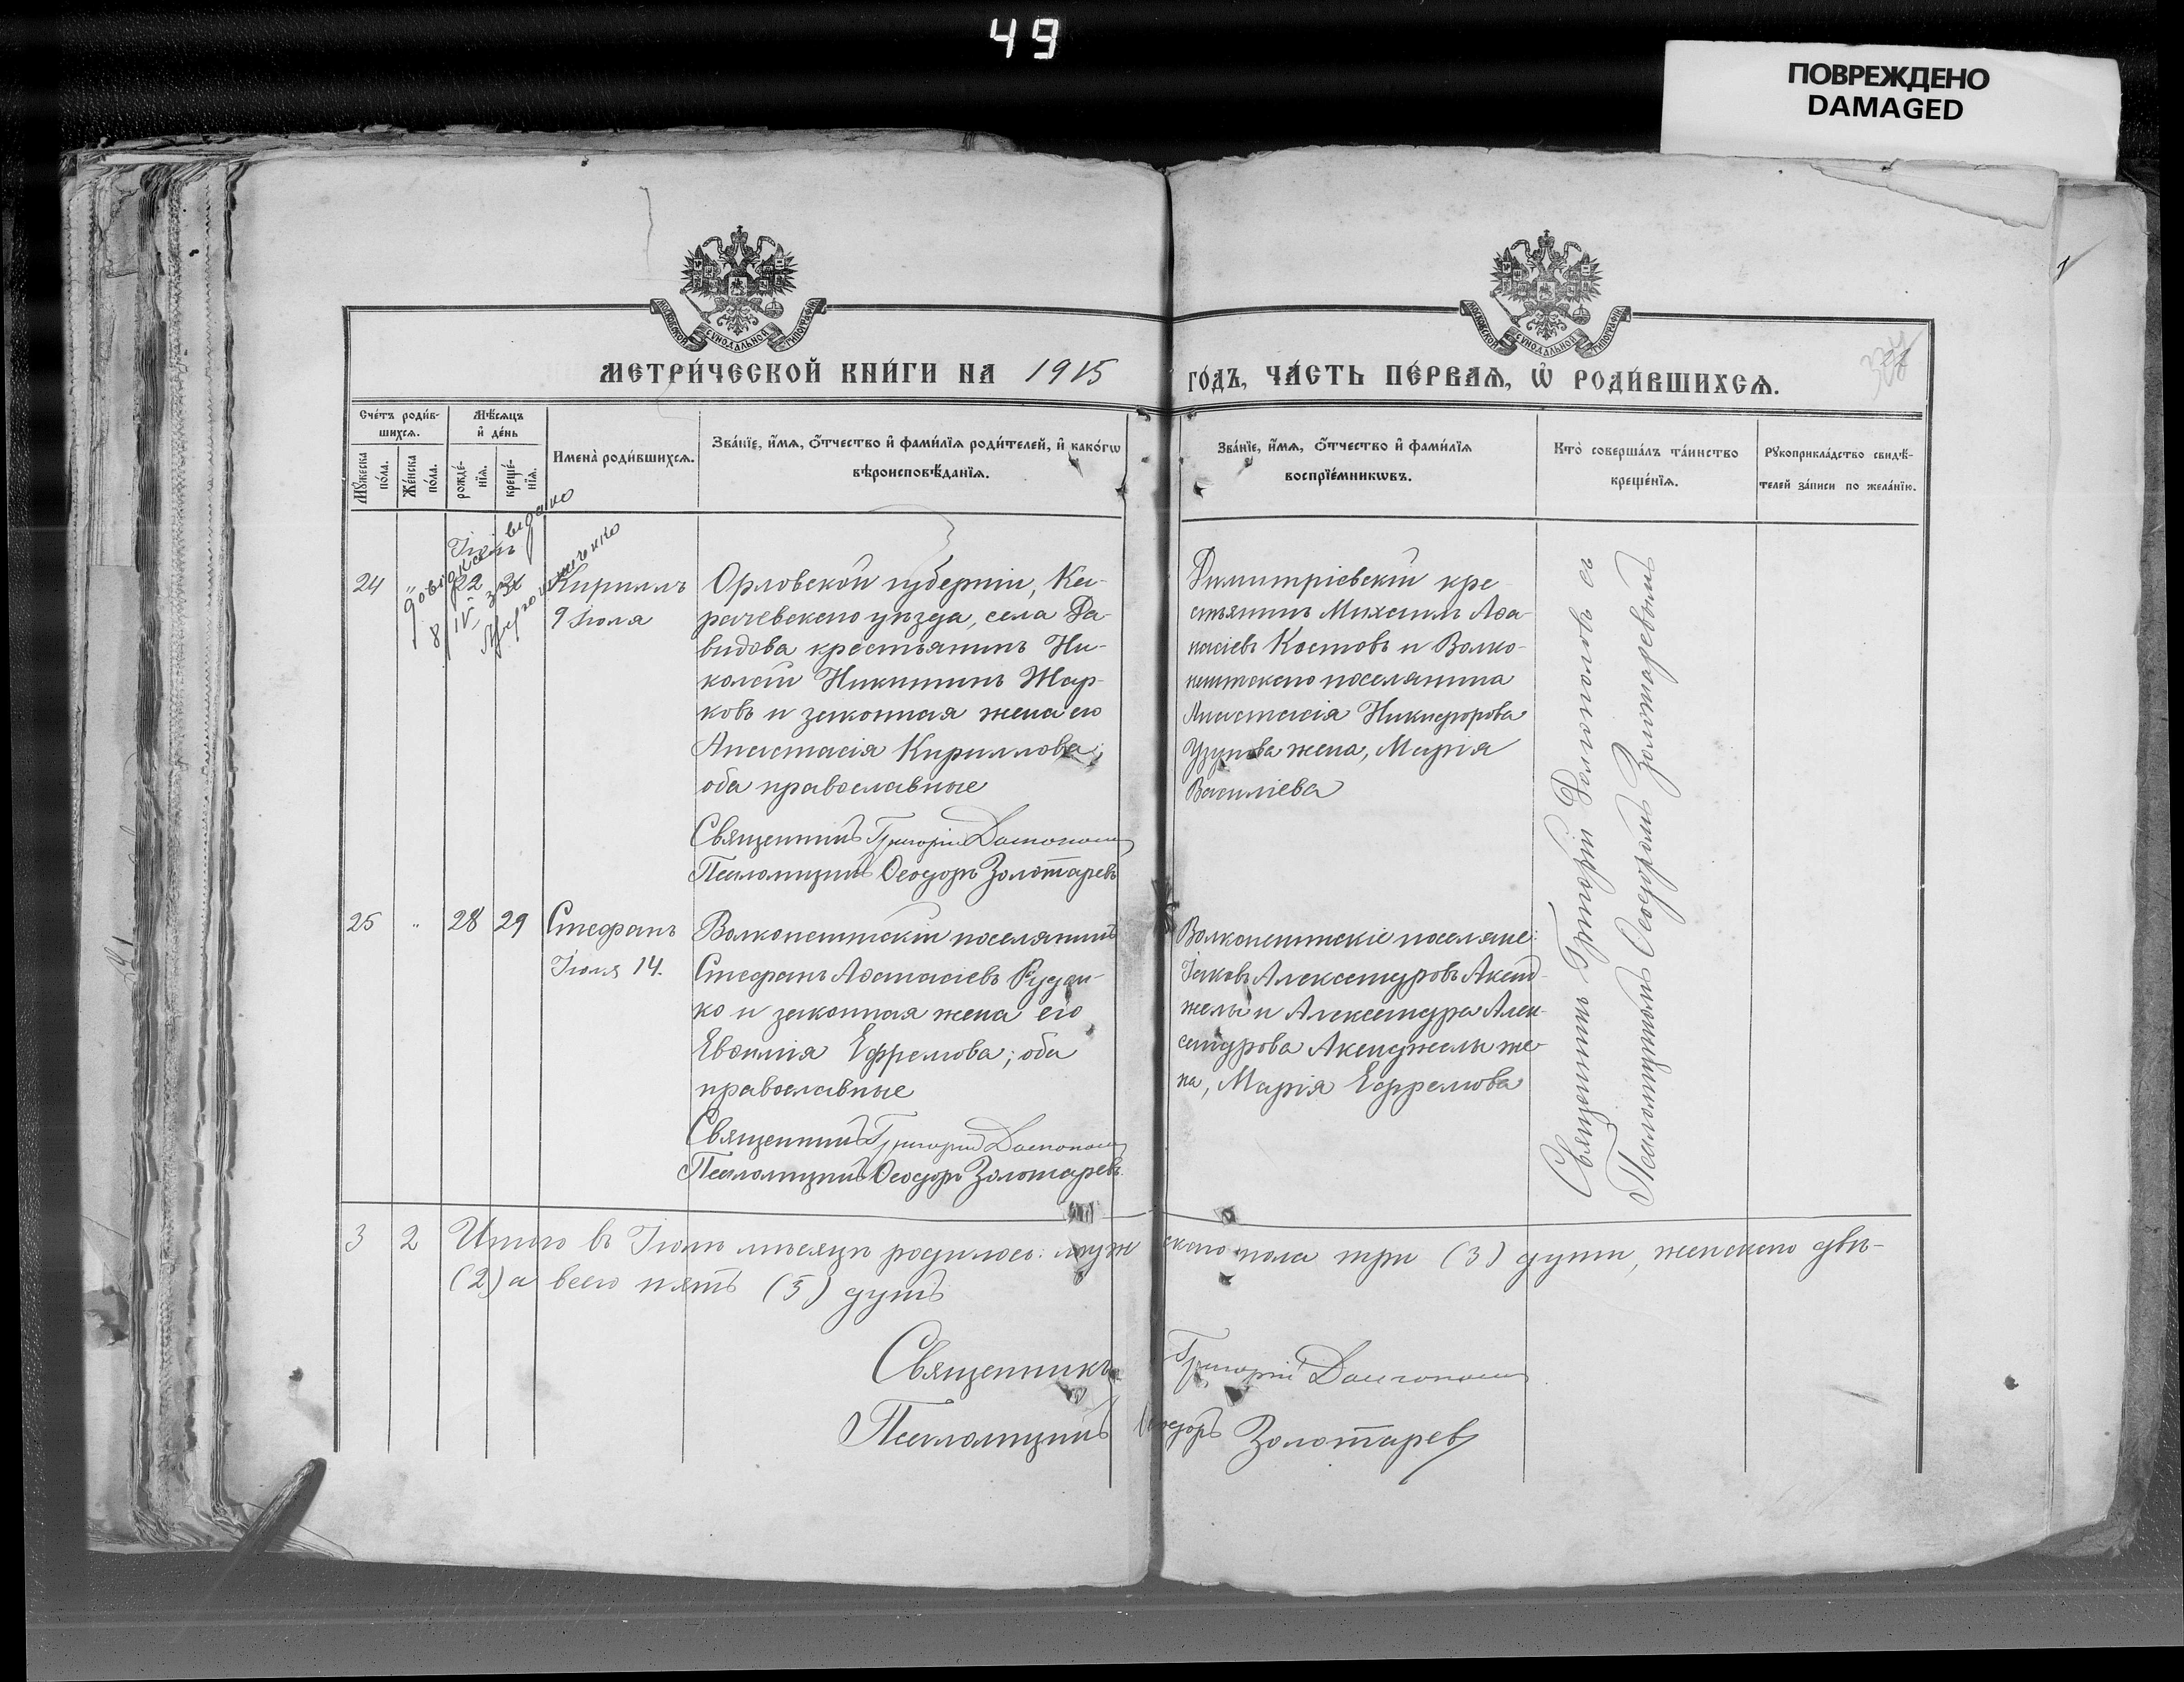 49
ПОВРЕЖДЕНО
DAMAGED
МЕТРИ́ЧЕСКОЙ КНИ́ГИ НА 1915
ГО́ДЪ, ЧА́СТЬ ПЕ́РВАѦ, Ѡ҆ РОДИ́ВШИХСѦ.
МОСКОВСКОЙ СѴНОДАЛЬНОЙ ТИПОГРАФІИ
МОСКОВСКОЙ СѴНОДАЛЬНОЙ ТИПОГРАФІИ
Сче́тъ роди́в-
шихсѧ.
Мѣ́сѧцъ
и҆ де́нь
Мꙋ́жеска
по́ла.
Же́нска
по́ла.
рожде́-
нїѧ.
креще́-
нїѧ.
Имена̀ роди́вшихсѧ.
Зва́нїе, и҆́мѧ, ѻ҆́тчество и҆ фами́лїѧ роди́телей, и҆ како́гѡ
вѣроисповѣ́данїѧ.
Зва́нїе, и҆́мѧ, ѻ҆́тчество и҆ фами́лїѧ
воспрїе́мникѡвъ.
Кто̀ соверша́лъ та́инство
креще́нїѧ.
Рꙋкоприкла́дство свидѣ́-
телей за́писи по жела́нїю.
Іюнь
24 " 22
Кириллъ
9 Іюля
Орловской губерніи, Ка-
рачевскаго уѣзда, села Да-
видова крестьянинъ Ни-
колай Никитинъ Жар-
ковъ и законная жена его
Анастасія Кириллова;
оба православные
Священникъ Григорій Долгополовъ
Псаломщикъ Ѳеодоръ Золотаревъ
Димитріевскій кре-
стьянинъ Михаилъ Аѳа-
насіевъ Костовъ и Волко-
нештскаго поселянина
Анастасія Никифорова
Узунова жена, Марія
Василіева
Священникъ Григорій Долгополовъ съ
Псаломщикомъ Ѳеодоромъ Золотаревымъ
25 " 28 29 Стефанъ
Іюля 14.
Волконештскій поселянинъ
Стефанъ Аѳанасіевъ Рудь-
ко и законная жена его
Евѳимія Ефремова; оба
православные
Священникъ Григорій Долгополовъ
Псаломщикъ Ѳеодоръ Золотаревъ.
Волконештскіе поселяне:
Іаковъ Александровъ Акенд-
желы и Александра Алек-
сандрова Акенджелы же-
на, Марія Ефремова
3 2 Итого въ Іюнѣ мѣсяцѣ родилось: мужескаго пола три (3) души, женскаго двѣ-
(2) а всего пять (5) душъ
Священникъ Григорій Долгополовъ
Псаломщикъ Ѳеодоръ Золотаревъ